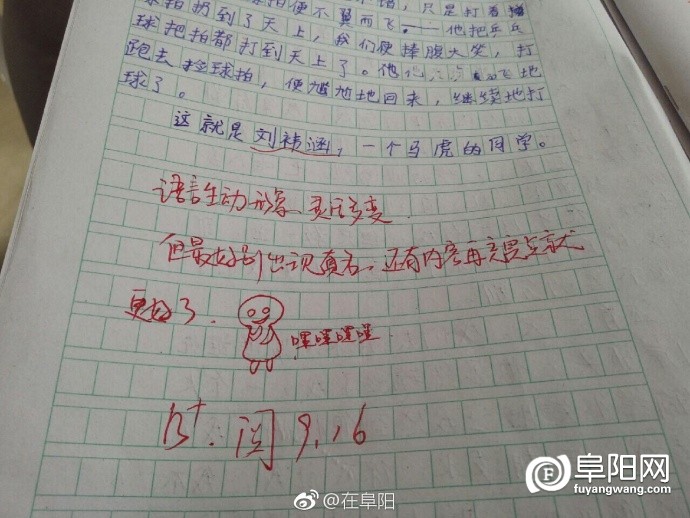 球拍扔到了天上，我们便捧腹大笑，打
球把拍都打到天上了。他
跑去捡球拍，便尴尬地回来，继续地打
球了。
这就是刘祎涵，一个马虎的同学。
语言生动形象、灵活多变
但最好别出现真名、还有内容再充实点就
更好了.
嘿嘿嘿嘿
B+. 阅 9.16
@在阜阳
阜阳网
fuyangwang.com